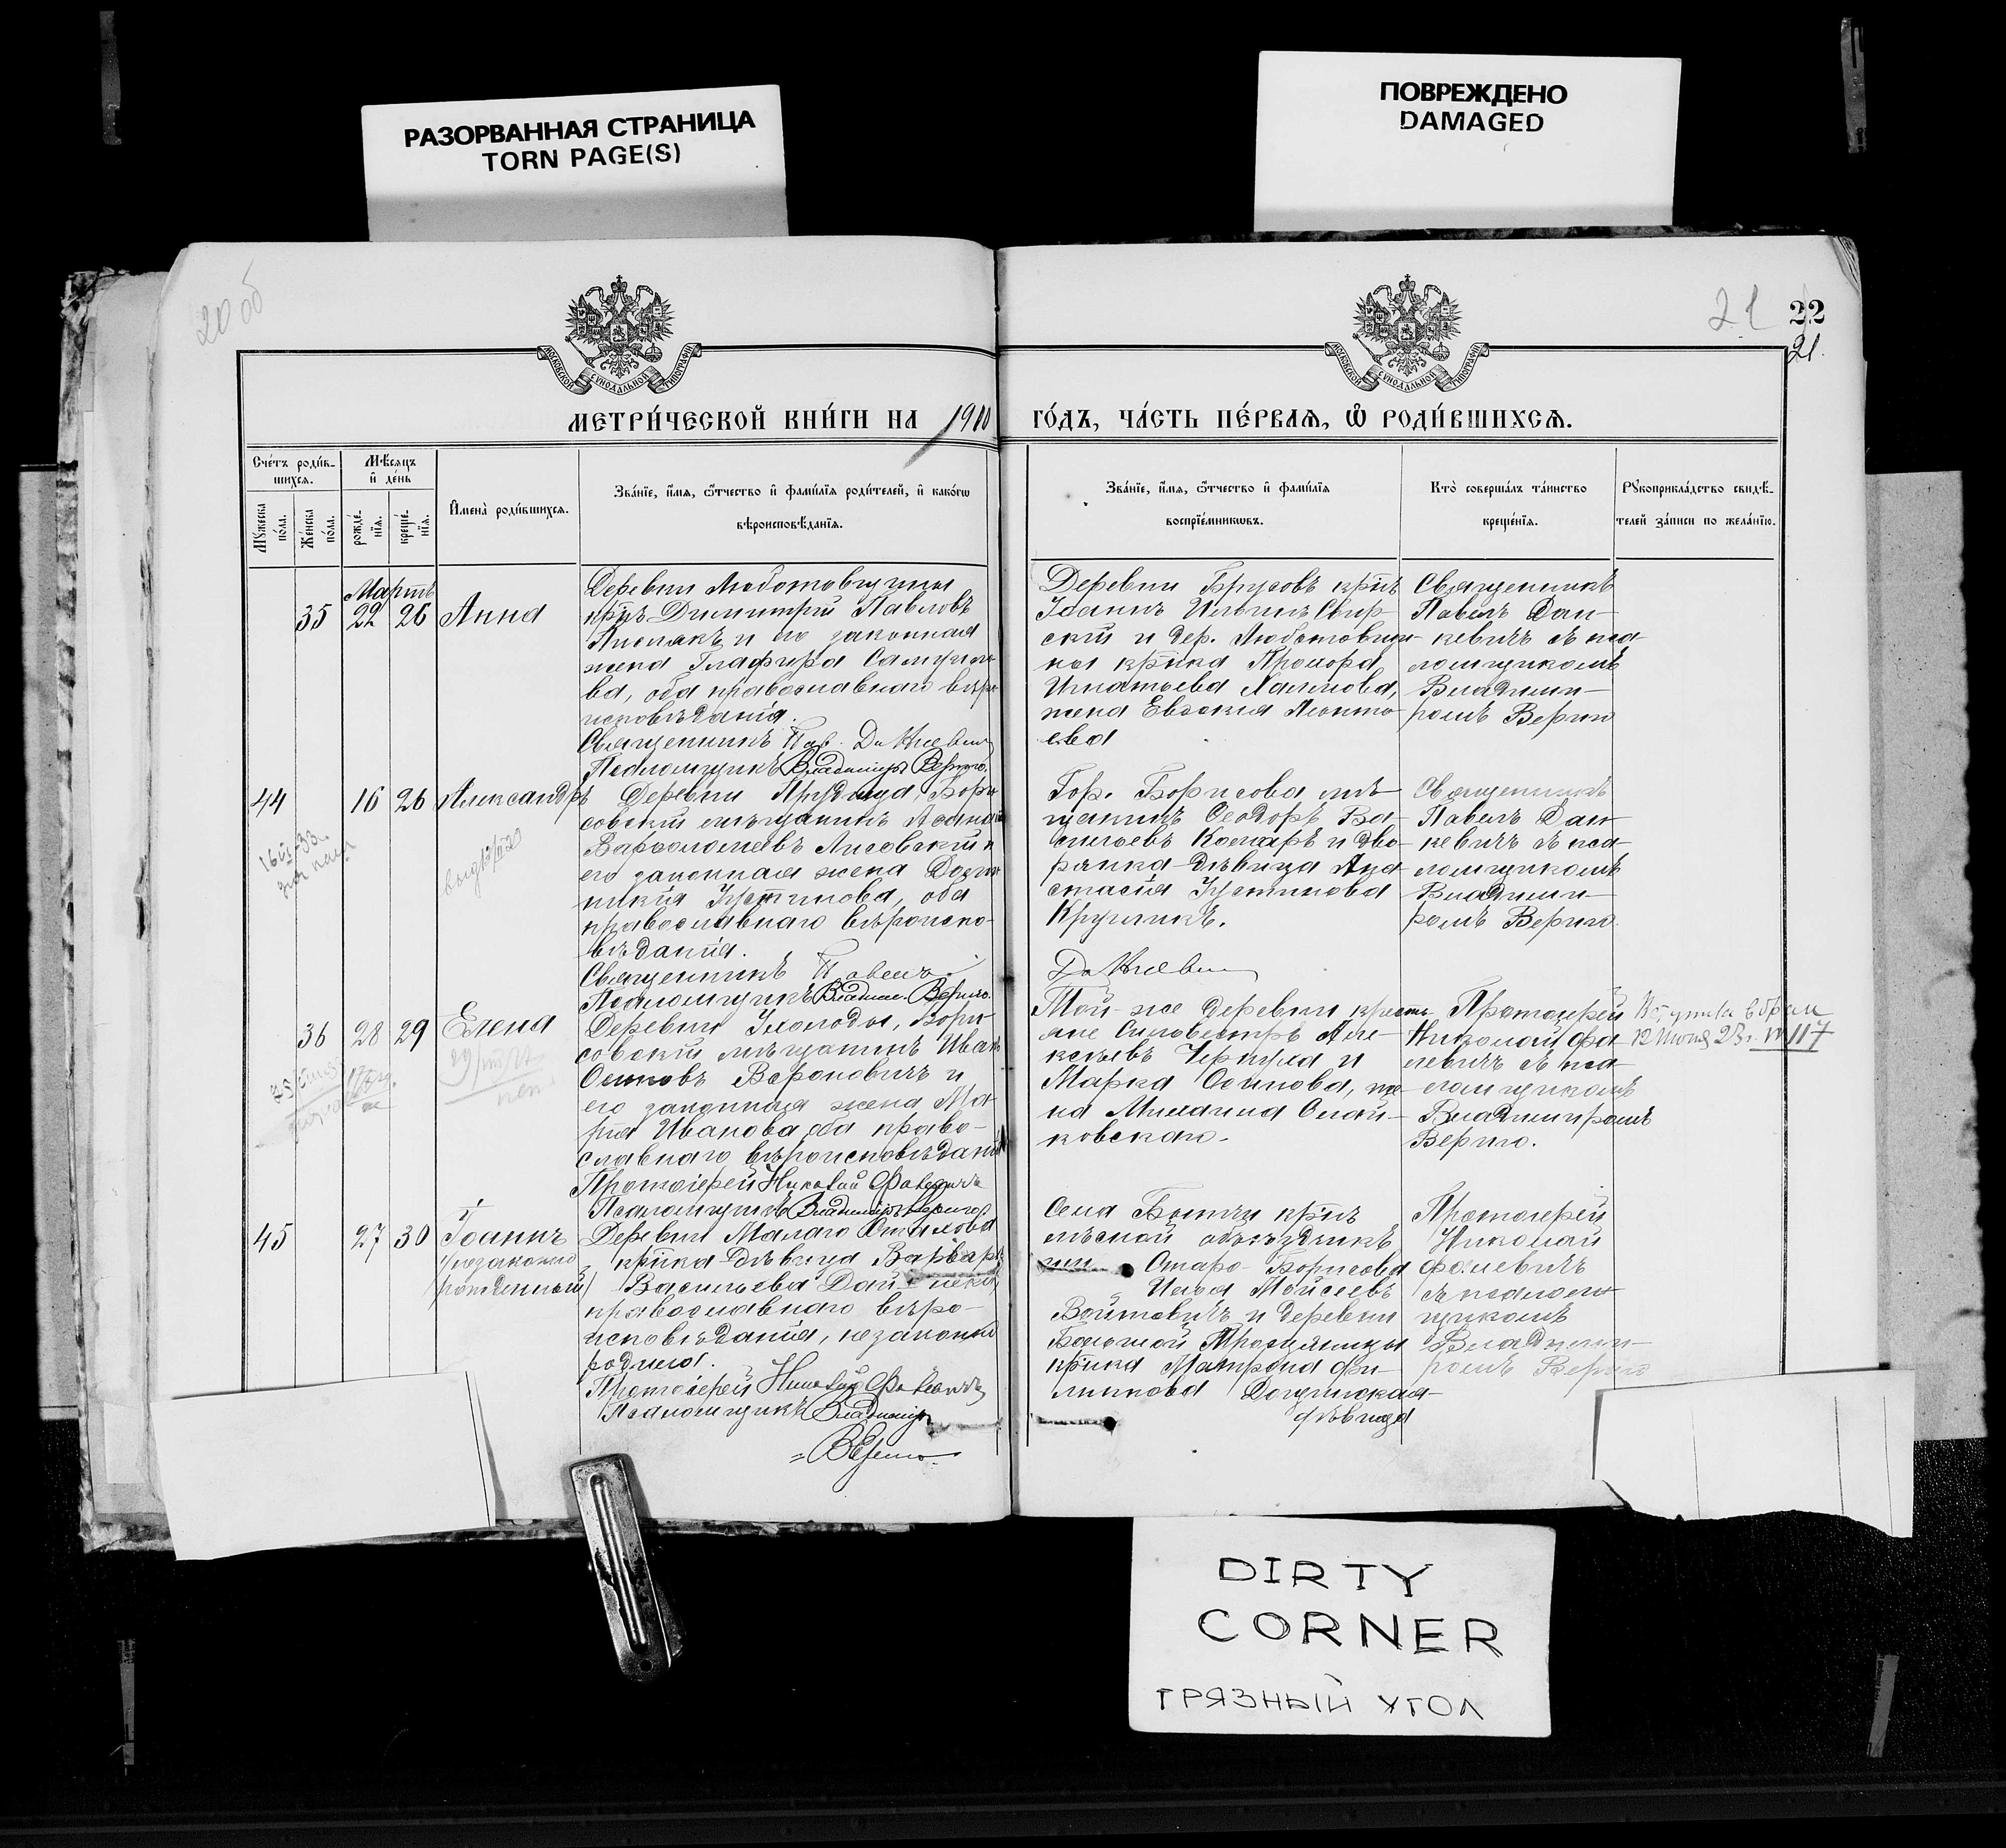 РАЗОРВАННАЯ СТРАНИЦА
TORN PAGE(S)
ПОВРЕЖДЕНО
DAMAGED
20 об
21
22
21.
МОСКОВСКОЙ СУНОДАЛЬНОЙ ТИПОГРАФІИ
МОСКОВСКОЙ СУНОДАЛЬНОЙ ТИПОГРАФІИ
МЕТРИ́ЧЕСКОЙ КНИ́ГИ НА 1910 ГО́ДЪ, ЧА́СТЬ ПЕ́РВАЯ, Ѡ҆ РОДИ́ВШИХСЯ.
Сче́тъ роди́в-
шихся.
Мѣсяцъ
и҆ де́нь
Мꙋжеска
по́ла.
Же́нска
по́ла.
рожде́-
нїя.
креще́-
нїя.
И҆мена̀ роди́вшихся.
Зва́нїе, и҆́мя, ѻ҆́тчество и҆ фами́лїя роди́телей, и҆ како́гѡ
вѣроисповѣ́данїя.
Зва́нїе, и҆́мя, ѻ҆́тчество и҆ фами́лїя
воспрїе́мникѡвъ.
Кто̀ соверша́лъ та́инство
креще́нїя.
Рꙋкоприкла́дство свидѣ́-
телей за́писи по жела́нїю.
Мартъ
35 22 26 Анна
Деревни Любатовщины
кр̃нъ Димитрій Павловъ
и его законная
жена Глафира Самуило-
ва, оба православнаго вѣро-
исповѣданія.
Священникъ Пав. Данкевичъ
Псаломщикъ Владиміръ Вериго.
Деревни Брусовъ кр̃нъ
Іоаннъ Ильинъ
скій и дер. Любатовщи-
ны кр̃нка Прохора
Игнатьева
жена Евдокія Леонть-
ева
Священникъ
Павелъ Дан-
кевичъ съ пса-
ломщикомъ
Владими-
ромъ Вериго
44 16 26 Александръ
Деревни Прудища, Бори-
совскій мѣщанинъ
Варѳоломеевъ Лисовскій и
его законная жена Дом-
никія Устинова, оба
православнаго вѣроиспо-
вѣданія.
Священникъ Павелъ
Данкевичъ
Псаломщикъ Владим. Вериго.
Гор. Борисова мѣ-
щанинъ Ѳеодоръ Ва-
сильевъ и дво-
рянка дѣвица Ана-
стасія Устинова
Кругликъ.
Священникъ
Павелъ Дан-
кевичъ съ пса-
ломщикомъ
Владими-
ромъ Вериго
36 28 29 Елена
Деревни Ухолоды, Бори-
совскій мѣщанинъ Иванъ
Осиповъ Вороновичъ и
его законная жена Ма-
рія Иванова оба право-
славнаго вѣроисповѣданія
Протоіерей Николай Фалевичъ
Псаломщикъ Владиміръ Вериго
Той-же деревни крестья-
не Сильвестръ Але-
ксѣевъ и
Марѳа Осипова, же-
на Михаила
ковскаго.
Протоіерей
Николай Фа-
левичъ съ пса-
ломщикомъ
Владиміромъ
Вериго.
Вступила в брак
12 Июня 23 г. № 117
45 27 30 Іоаннъ
(незаконно
рожденный)
Деревни Малаго Стахова
кр̃нка дѣвица Варвара
Васильева
православнаго вѣро-
исповѣданія, незаконно
родила.
Протоіерей Николай Фалевичъ
Псаломщикъ Владиміръ
Вериго.
Села Бытчи кр̃нъ
лѣсной объѣздчикъ
Старо-Борисова
Илья Мойсеевъ
Войтовичъ и деревни
Большой Тростяницы
кр̃нка Матрона Фи-
липпова
дѣвица
Протоіерей
Николай
Фалевичъ
съ псалом-
щикомъ
Владими-
ромъ Вериго
DIRTY
CORNER
ГРЯЗНЫЙ УГОЛ